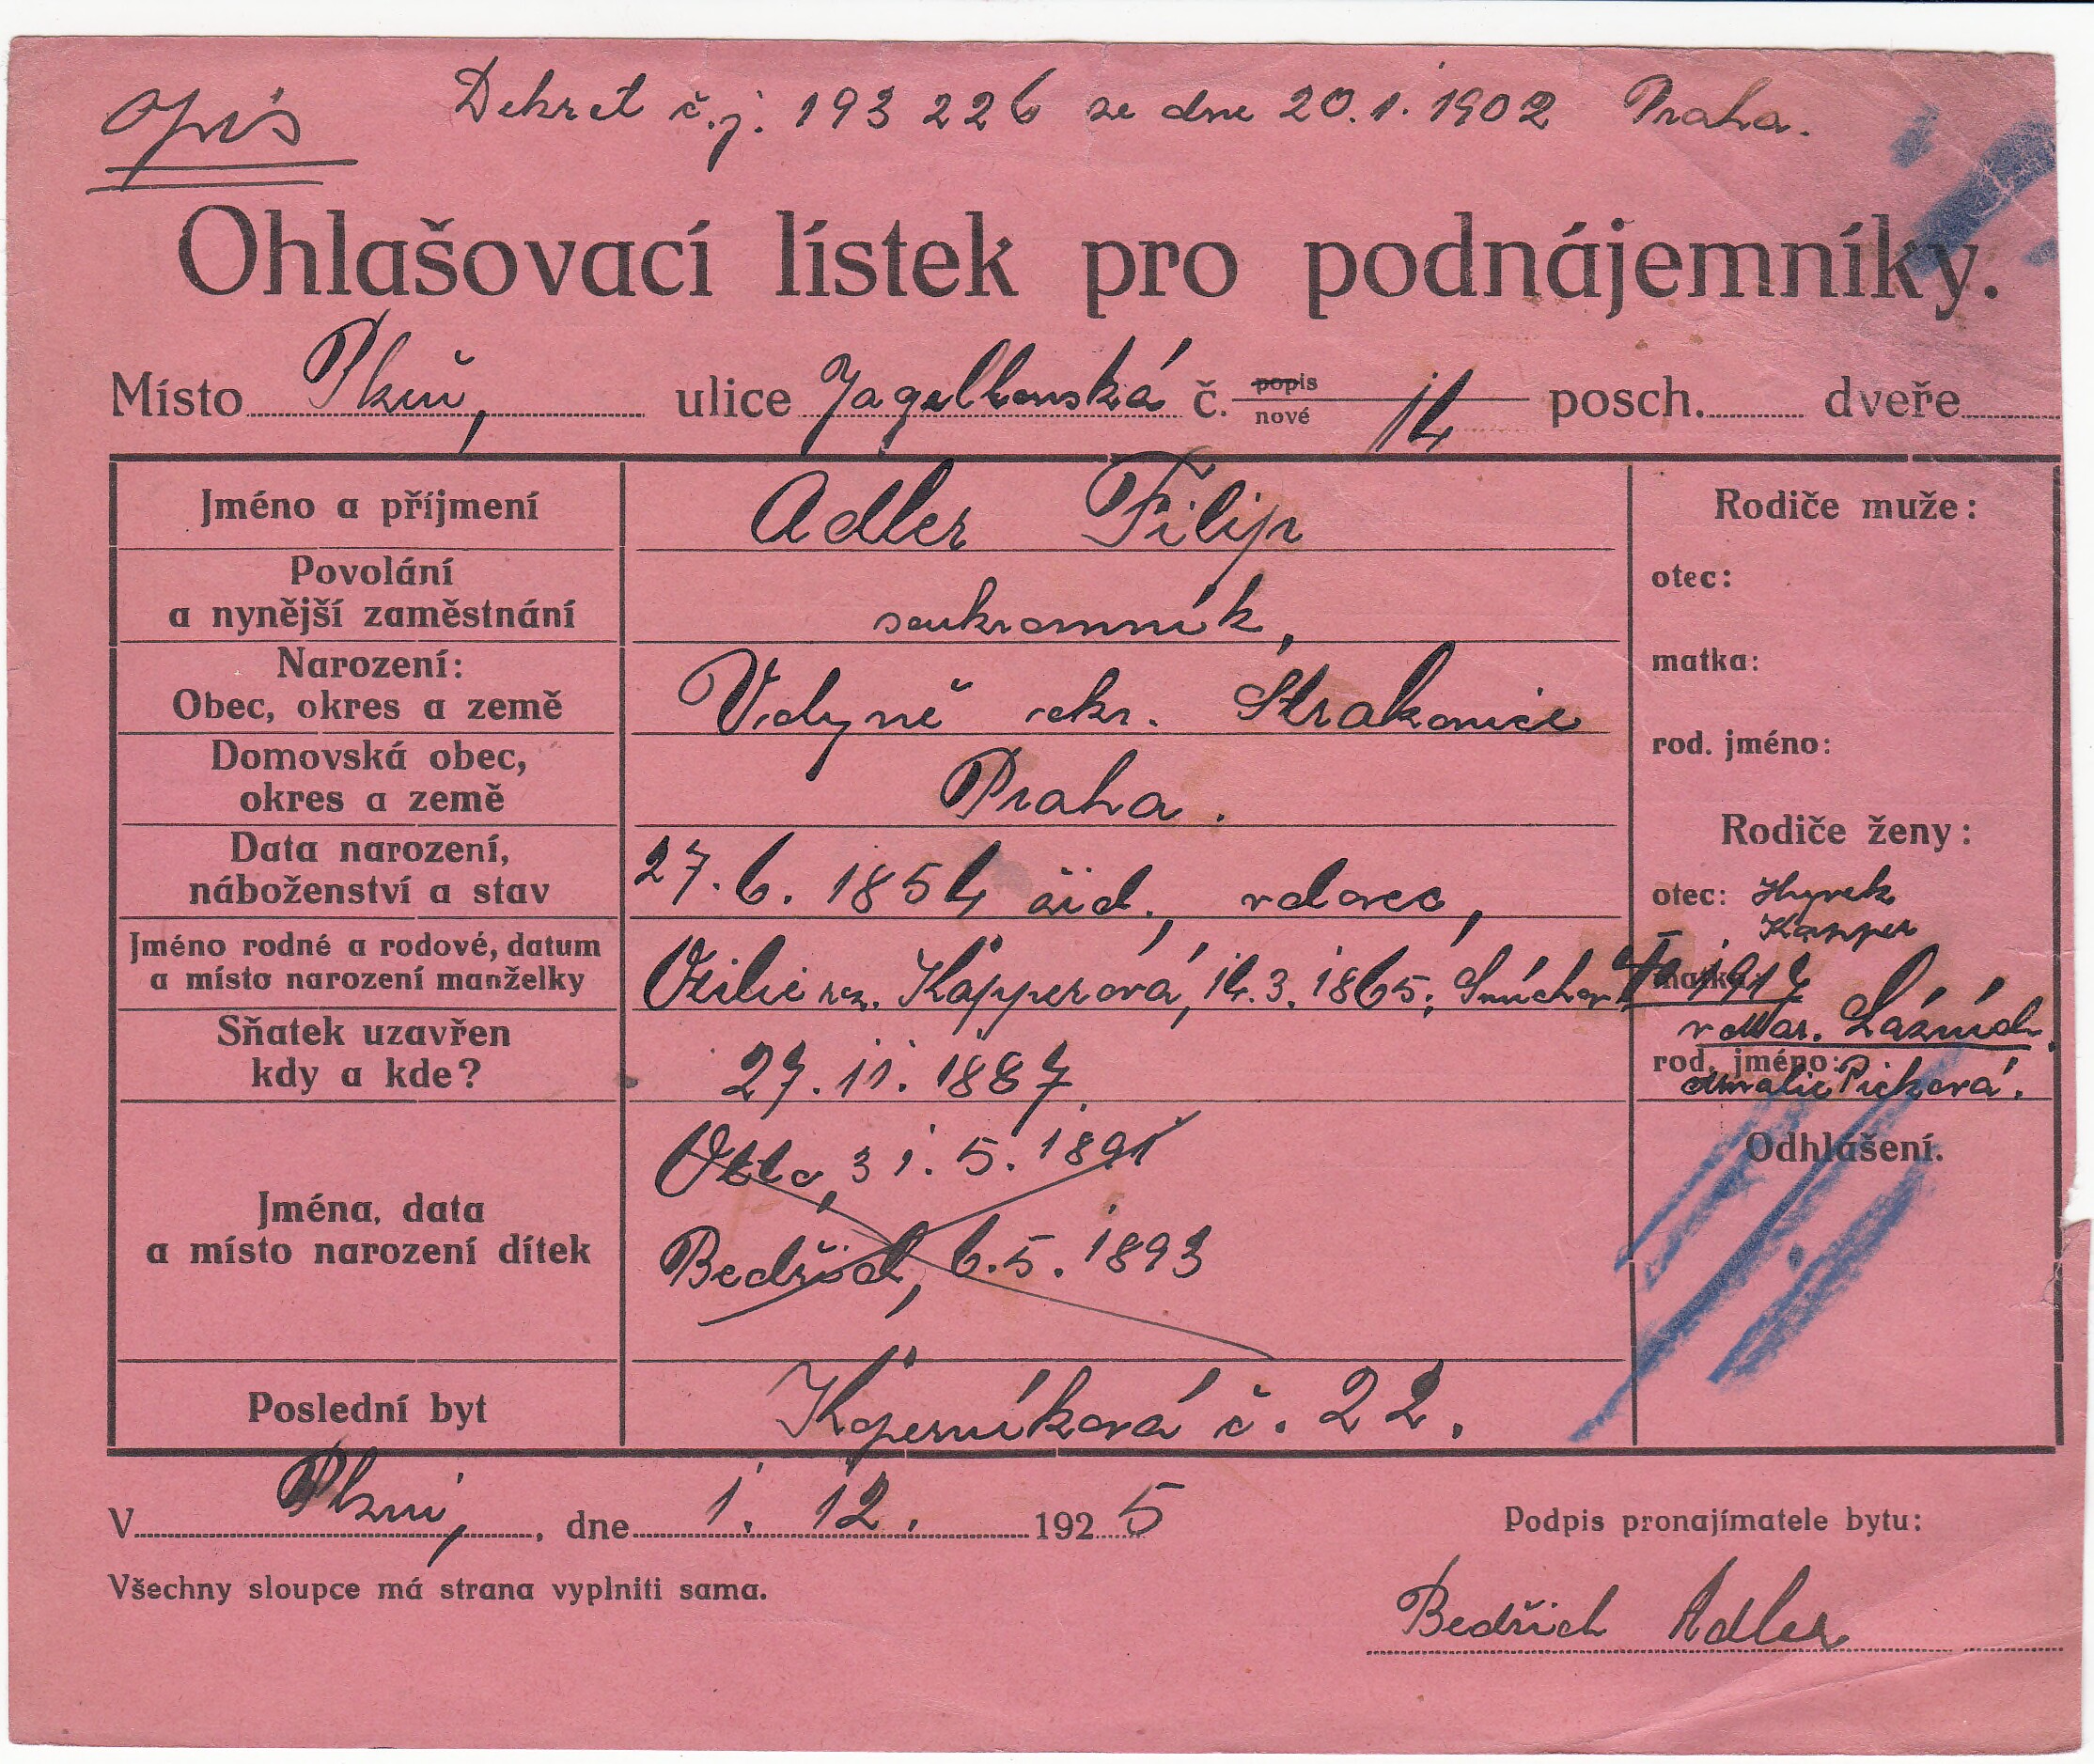 opis
Dekret č.j. 193 226 ze dne 20.1.1902 Praha.
Ohlašovací lístek pro podnájemníky.
Místo Plzeň, ulice Jagellonská č. popis nové 14 posch. dveře
Jméno a příjmení Adler Filip
Povolání
a nynější zaměstnání soukromník,
Narození:
Obec, okres a země Vidyně okr. Strakonice
Domovská obec,
okres a země Praha.
Data narození,
náboženství a stav 27.6.1854 žid., vdovec,
Jméno rodné a rodové, datum
a místo narození manželky Otilie roz. Kapperová, 14.3.1865, Smíchov
Sňatek uzavřen
kdy a kde? 27.11.1887
Jména, data
a místo narození dítek
Otto, 31.5.1891
Bedřich, 6.5.1893
Poslední byt Koperníková č. 22.
Rodiče muže:
otec:
matka:
rod. jméno:
Rodiče ženy:
otec: Hynek
Kapper
matka: 1917
v Mar. Lázních
rod. jméno:
Amalie Picková.
Odhlášení.
V Plzni, dne 1. 12. 1925
Podpis pronajímatele bytu:
Všechny sloupce má strana vyplniti sama.
Bedřich Adler